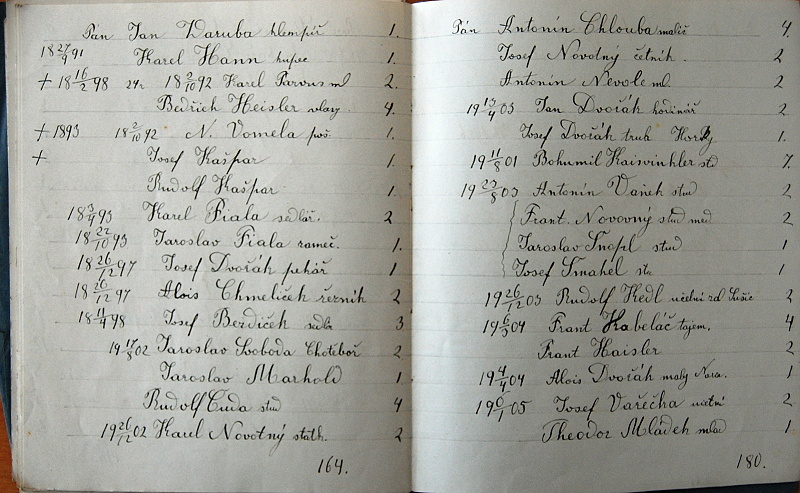 Pán Jan Waruba klempíř 1.
18 27/9 91 Karel Hann kupec 1.
+ 18 16/2 98 24r 18 2/10 92 Karel Parvus ml 2.
Bedřich Heisler vlasy 4.
+ 1893 18 2/10 92 N. Vomela poš. 1.
+ Josef Kašpar 1.
Rudolf Kašpar 1.
18 3/4 93 Karel Fiala sedlář. 2
18 22/10 93 Jaroslav Fiala 1.
18 26/12 97 Josef Dvořák pekář 1
18 26/12 97 Alois Chmelíček řezník 2
18 11/4 98 Josef Berdíček 3
19 17/8 02 Jaroslav Svoboda Chotěboř 2
Jaroslav Marhold 1
Rudolf Cuda stud 4
19 26/12 02 Karel Novotný statk. 2
164.
Pán Antonín Chlouba malíř 4.
Josef Novotný četník. 2
Antonín Nevole ml. 2
19 13/4 03 Jan Dvořák hodinář 2
Josef Dvořák truh Horky 1.
19 11/8 01 Bohumil Kaiswinkler std 7.
19 23/8 03 Antonín Vaněk stud 2
Frant. Novovný stud med 2
Jaroslav Šnajl stud 1
Josef Smahel stu 1
19 26/12 03 Rudolf Kedl učetní zd Sušic 2
19 04 Frant Kabeláč tajem. 4
Frant Haisler 2
19 4/4 04 Alois Dvořák 1.
19 6/1 05 Josef Vařečka účetní 2
Theodor Mládek mlad 1
180.